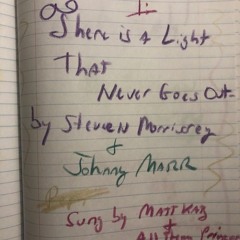 There is a Light
That
Never Goes Out
by Steven Morrissey
&
Johnny MARR
Sung by MATT KATZ
+
All Them Princes